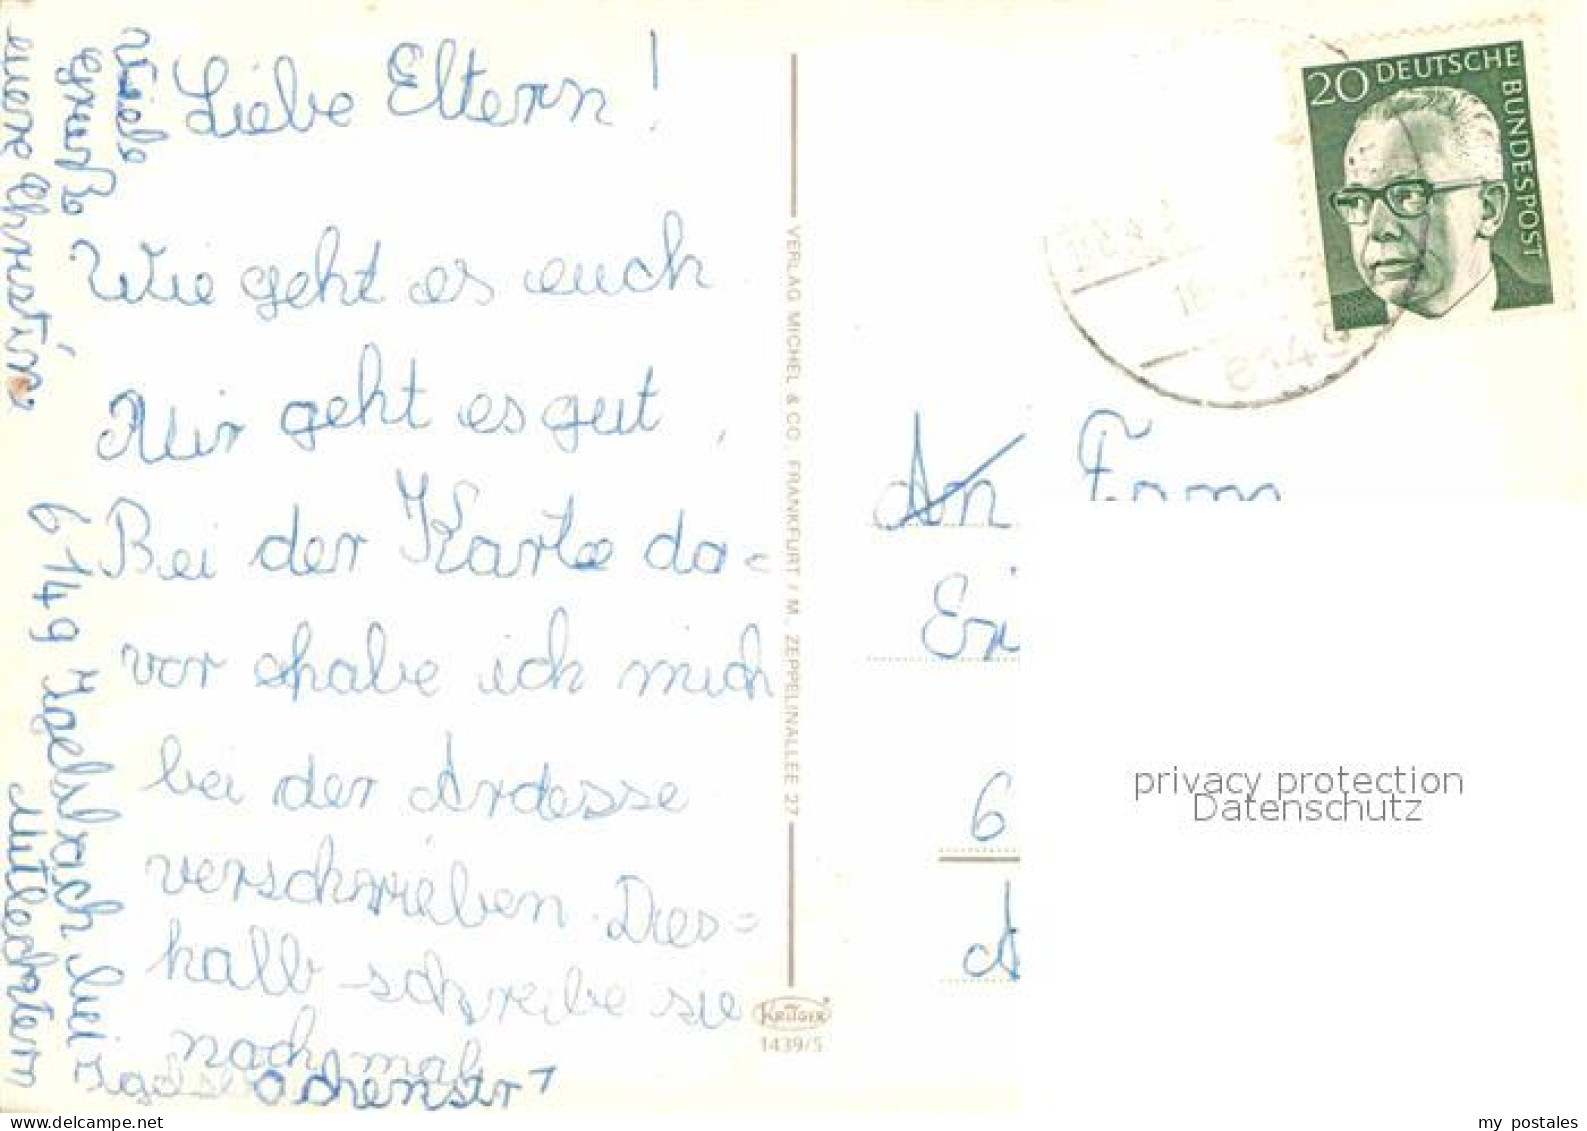 Liebe Eltern!
Wie geht es euch
Mir geht es gut,
Bei der Karte da=
vor habe ich mich
bei der Ardesse
verschrieben. Dies=
halb schreibe sie
nochmal
Viele
Gruße
euere Christina
6149 Igelsbach bei
Mitlechtern
VERLAG MICHEL & CO. FRANKFURT / M. ZEPPELINALLEE 27
KRÜGER
1439/5
20 DEUTSCHE BUNDESPOST
An Fam
6
A
privacy protection
Datenschutz
www.delcampe.net
my postales